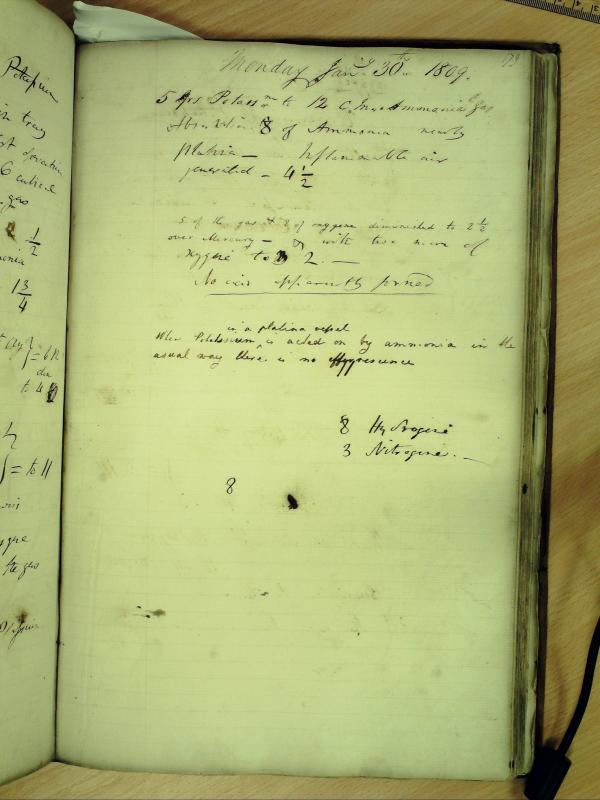 Potassium
in tray
6 cubical
gas
1/2
1 3/4
= 6 n
to 4
= to 11
the gas
173
Monday Jany. 30th. 1809.
5 Grs Potassm to 12 C. In. Ammonia Gas
Absorbtion 8 of Ammonia nearly
platina — Inflammable air
generated — 4 1/2
5 of the gas + 3 of oxygene diminished to 2 1/2
over Mercury — & with two more of
oxygene to 2. —
No air apparently formed
in a platina vessel
When Potassium is acted on by ammonia in the
usual way there is no effervescence
8 Hydrogene
3 Nitrogene. —
8